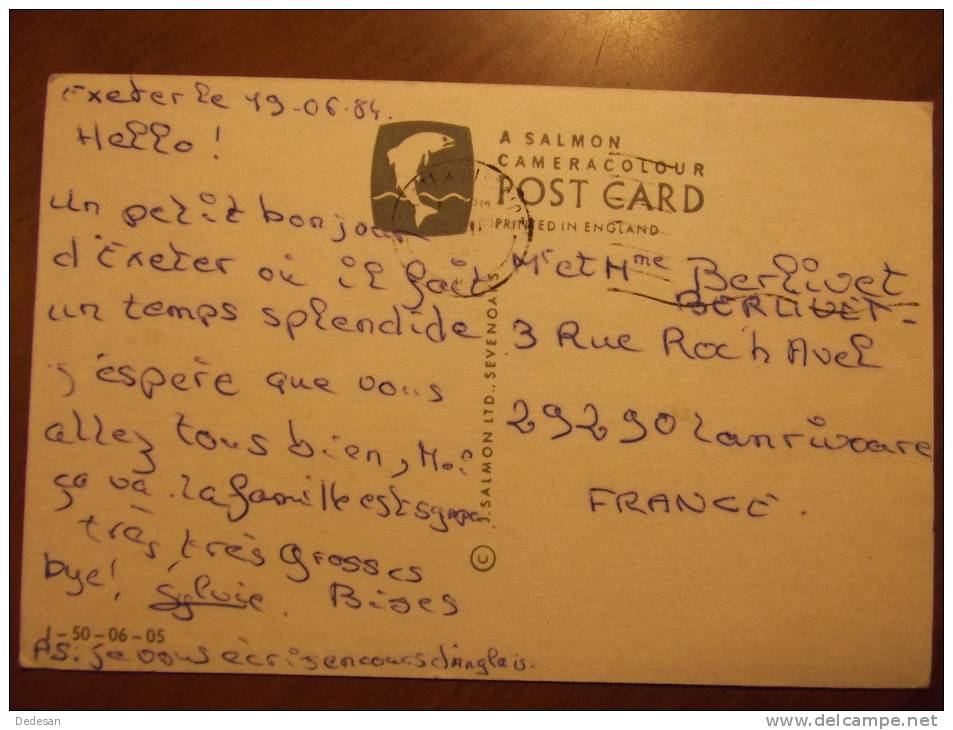 Exeter le 19-06-84.
Hello !
un petit bonjour
d'Exeter où il fait
un temps splendide
j'espère que vous
allez tous bien, Moi
ça va. la famille est sympa
très, très grosses
bye! Sylvie. Bises
1-50-06-05
PS: je vous écris en cours d'Anglais.
A SALMON
CAMERACOLOUR
POST CARD
PRINTED IN ENGLAND
© J. SALMON LTD., SEVENOAKS
Mr et Mme Berlivet
BERLIVET-
3 Rue Roc'h Avel
29290 Lanrivoare
FRANCE.
Dedesan
www.delcampe.net